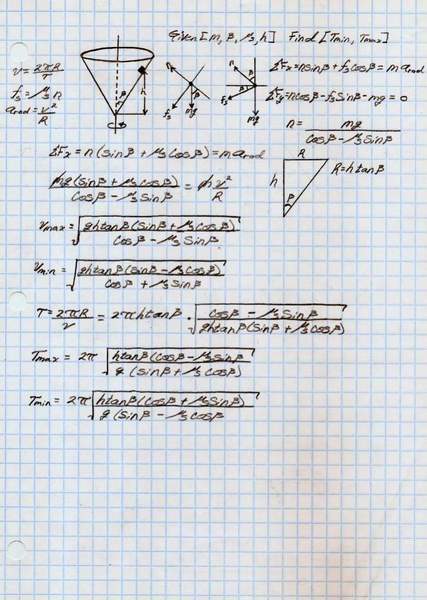 Given [m, β, μs, h] Find [Tmin, Tmax]
v = 2πR/T
fs = μs n
arad = v²/R
β
h
n
β
fs
mg
n
β
β
fs
mg
ΣFx = n sinβ + fs cosβ = m arad
ΣFy = n cosβ - fs sinβ - mg = 0
n = mg / (cosβ - μs sinβ)
ΣFx = n (sinβ + μs cosβ) = m arad
R
h
β
R = h tanβ
mg (sinβ + μs cosβ) / (cosβ - μs sinβ) = m v²/R
vmax = √(gh tanβ (sinβ + μs cosβ) / (cosβ - μs sinβ))
vmin = √(gh tanβ (sinβ - μs cosβ) / (cosβ + μs sinβ))
T = 2πR/v = 2πh tanβ · √((cosβ - μs sinβ) / (gh tanβ (sinβ + μs cosβ)))
Tmax = 2π √(h tanβ (cosβ - μs sinβ / g (sinβ + μs cosβ))
Tmin = 2π √(h tanβ (cosβ + μs sinβ) / g (sinβ - μs cosβ)